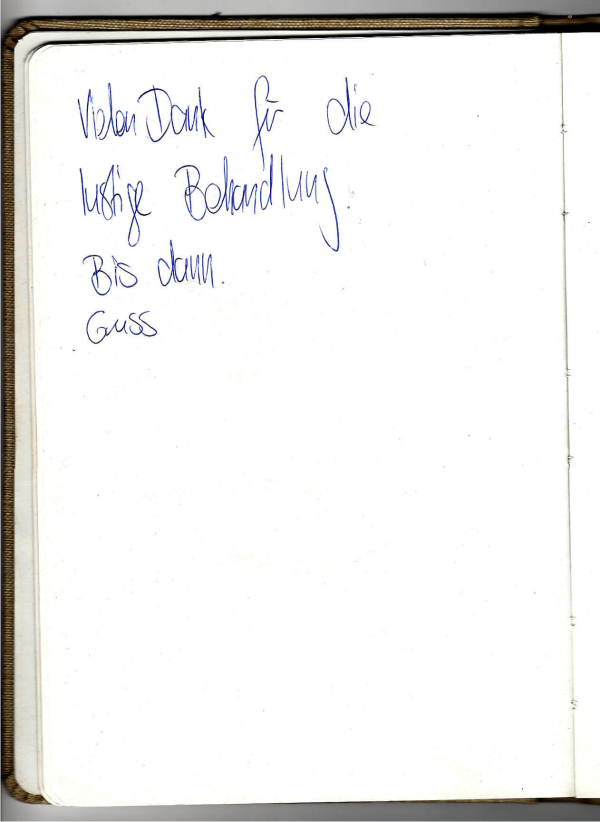 Vielen Dank für die
lustige Behandlung.
Bis dann.
Gruss